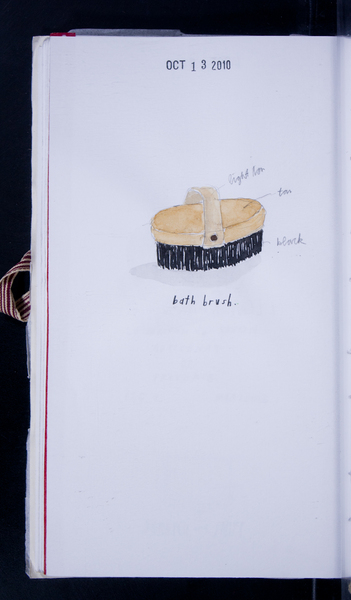 OCT 13 2010
light tan
tan
black
bath brush.